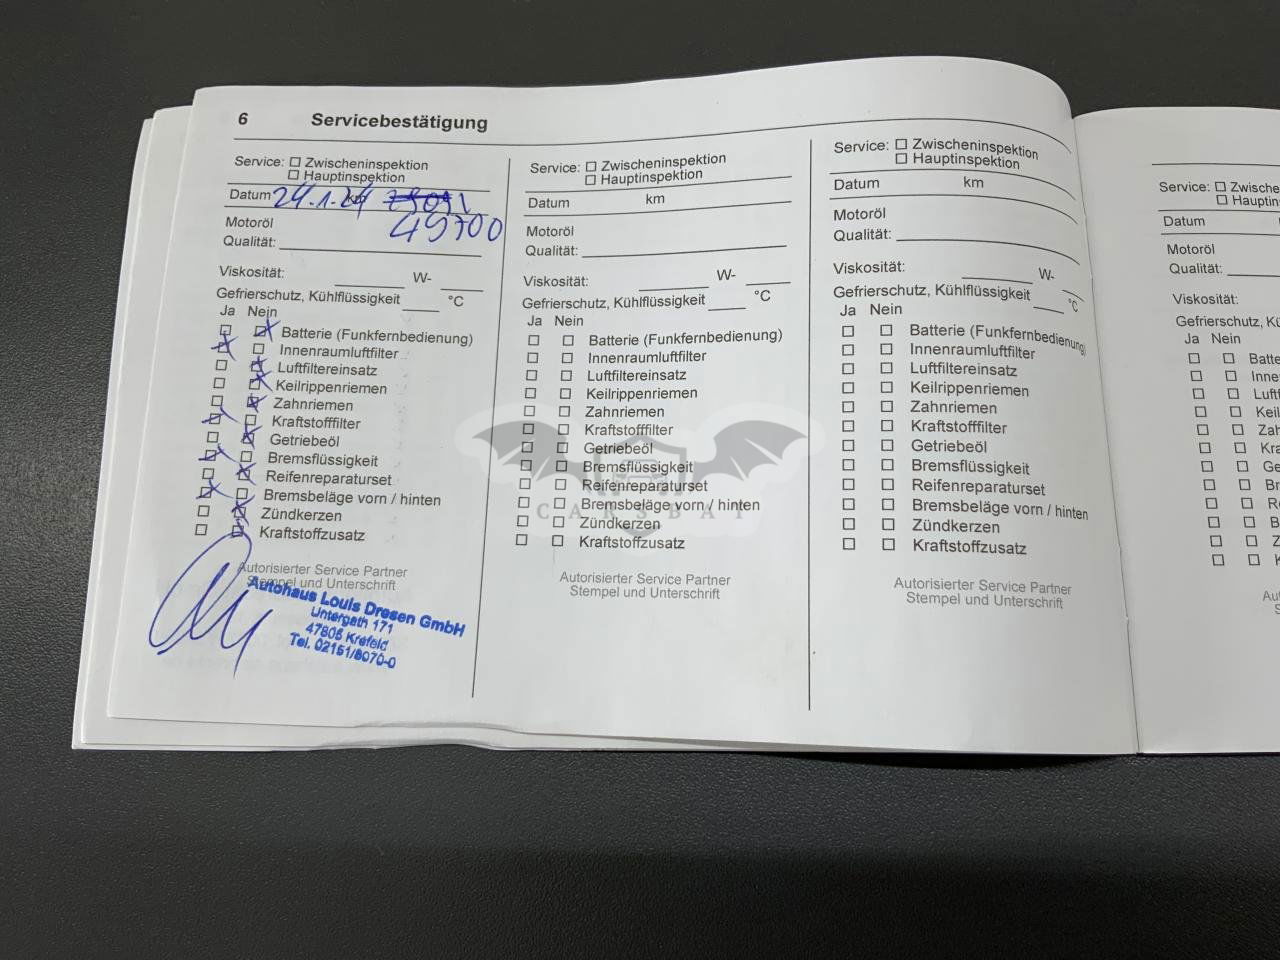 6 Servicebestätigung
Service: Zwischeninspektion
Hauptinspektion
Datum 24.1.24 km
49700
Motoröl
Qualität:
Viskosität: W-
Gefrierschutz, Kühlflüssigkeit °C
Ja Nein
Batterie (Funkfernbedienung)
Innenraumluftfilter
Luftfiltereinsatz
Keilrippenriemen
Zahnriemen
Kraftstofffilter
Getriebeöl
Bremsflüssigkeit
Reifenreparaturset
Bremsbeläge vorn / hinten
Zündkerzen
Kraftstoffzusatz
Autorisierter Service Partner
Stempel und Unterschrift
Autohaus Louis Dresen GmbH
Untergath 171
47805 Krefeld
Tel. 02151/8070-0
Service: Zwischeninspektion
Hauptinspektion
Datum km
Motoröl
Qualität:
Viskosität: W-
Gefrierschutz, Kühlflüssigkeit °C
Ja Nein
Batterie (Funkfernbedienung)
Innenraumluftfilter
Luftfiltereinsatz
Keilrippenriemen
Zahnriemen
Kraftstofffilter
Getriebeöl
Bremsflüssigkeit
Reifenreparaturset
Bremsbeläge vorn / hinten
Zündkerzen
Kraftstoffzusatz
Autorisierter Service Partner
Stempel und Unterschrift
CARSBAT
Service: Zwischeninspektion
Hauptinspektion
Datum km
Motoröl
Qualität:
Viskosität: W-
Gefrierschutz, Kühlflüssigkeit °C
Ja Nein
Batterie (Funkfernbedienung)
Innenraumluftfilter
Luftfiltereinsatz
Keilrippenriemen
Zahnriemen
Kraftstofffilter
Getriebeöl
Bremsflüssigkeit
Reifenreparaturset
Bremsbeläge vorn / hinten
Zündkerzen
Kraftstoffzusatz
Autorisierter Service Partner
Stempel und Unterschrift
Service: Zwische
Hauptin
Datum
Motoröl
Qualität:
Viskosität:
Gefrierschutz, Kü
Ja Nein
Batte
Inne
Luft
Kei
Zah
Kra
Ge
Br
Re
B
Z
K
Au
S